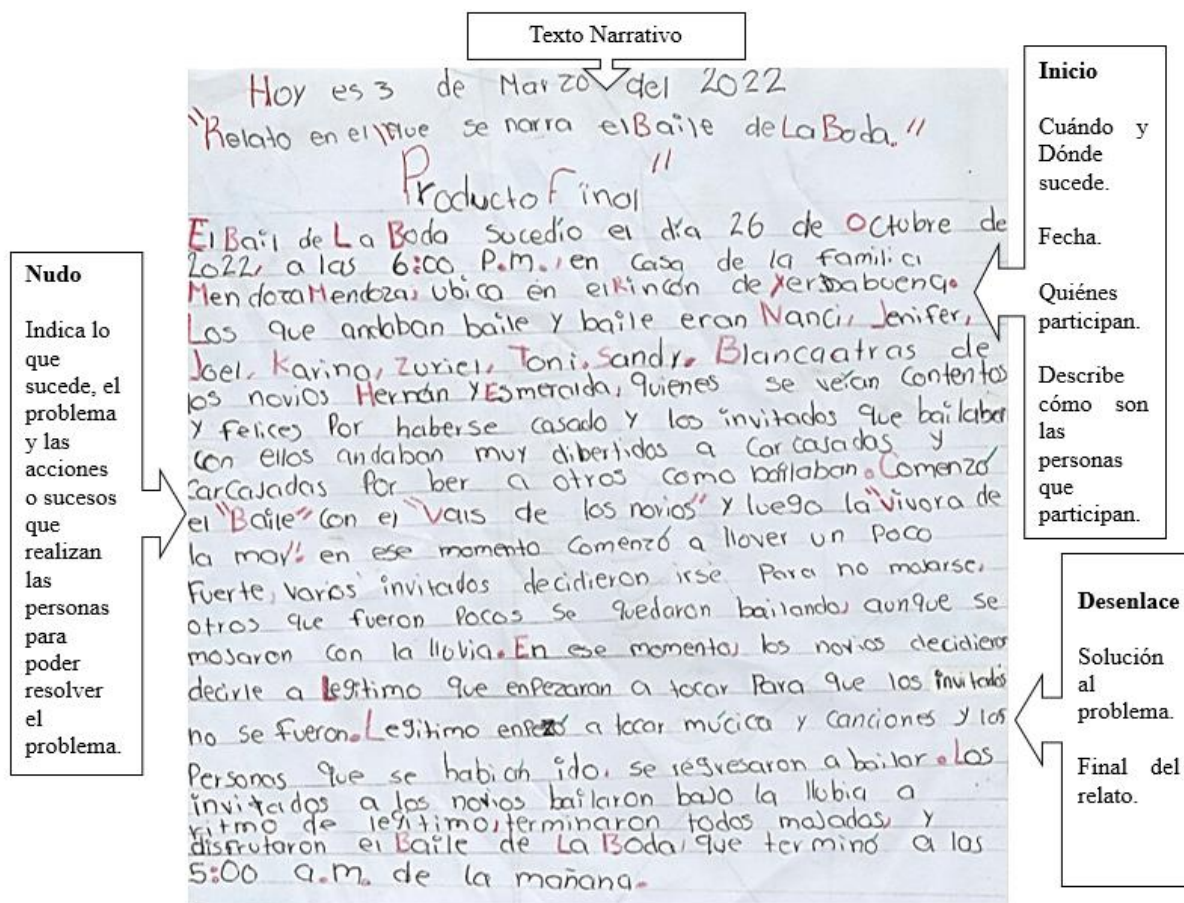 Texto Narrativo
Hoy es 3 de Marzo del 2022
"Relato en el que se narra el Baile de La Boda."
Producto Final"
El Bail de La Boda sucedio el día 26 de Octubre de
2022, a las 6:00 P.m., en casa de la familia
Mendoza Mendoza, ubica en el Rincón de Yerbabuena.
Los que andaban baile y baile eran Nanci, Jenifer,
Joel, Karina, Zuriel, Toni, Sandr. Blanca atras de
los novios Hernán y Esmeralda, quienes se veían contentos
y felices Por haberse casado y los invitados que bailaban
con ellos andaban muy dibertidos a carcasadas y
carcasadas Por ber a otros como bailaban. Comenzó
el "Baile" con el "Vals de los novios" y luego la "Vivora de
la mar". en ese momento comenzó a llover un Poco
Fuerte, varios invitados decidieron irse Para no mojarse,
otros que fueron Pocos se quedaron bailando, aunque se
mojaron con la llobia. En ese momento, los novios decidiero
decirle a Legitimo que enpezaran a tocar Para que los invitados
no se fueron. Legitimo enpezó a tocar múcica y canciones y las
Personas que se habian ido, se regresaron a bailar. Los
invitados a los novios bailaron bajo la llubia a
ritmo de legitimo, terminaron todos mojados, y
disfrutaron el Baile de La Boda, que terminó a las
5:00 a.m. de la mañana.
Nudo
Indica lo
que
sucede, el
problema
y las
acciones
o sucesos
que
realizan
las
personas
para
poder
resolver
el
problema.
Inicio
Cuándo y
Dónde
sucede.
Fecha.
Quiénes
participan.
Describe
cómo son
las
personas
que
participan.
Desenlace
Solución
al
problema.
Final del
relato.